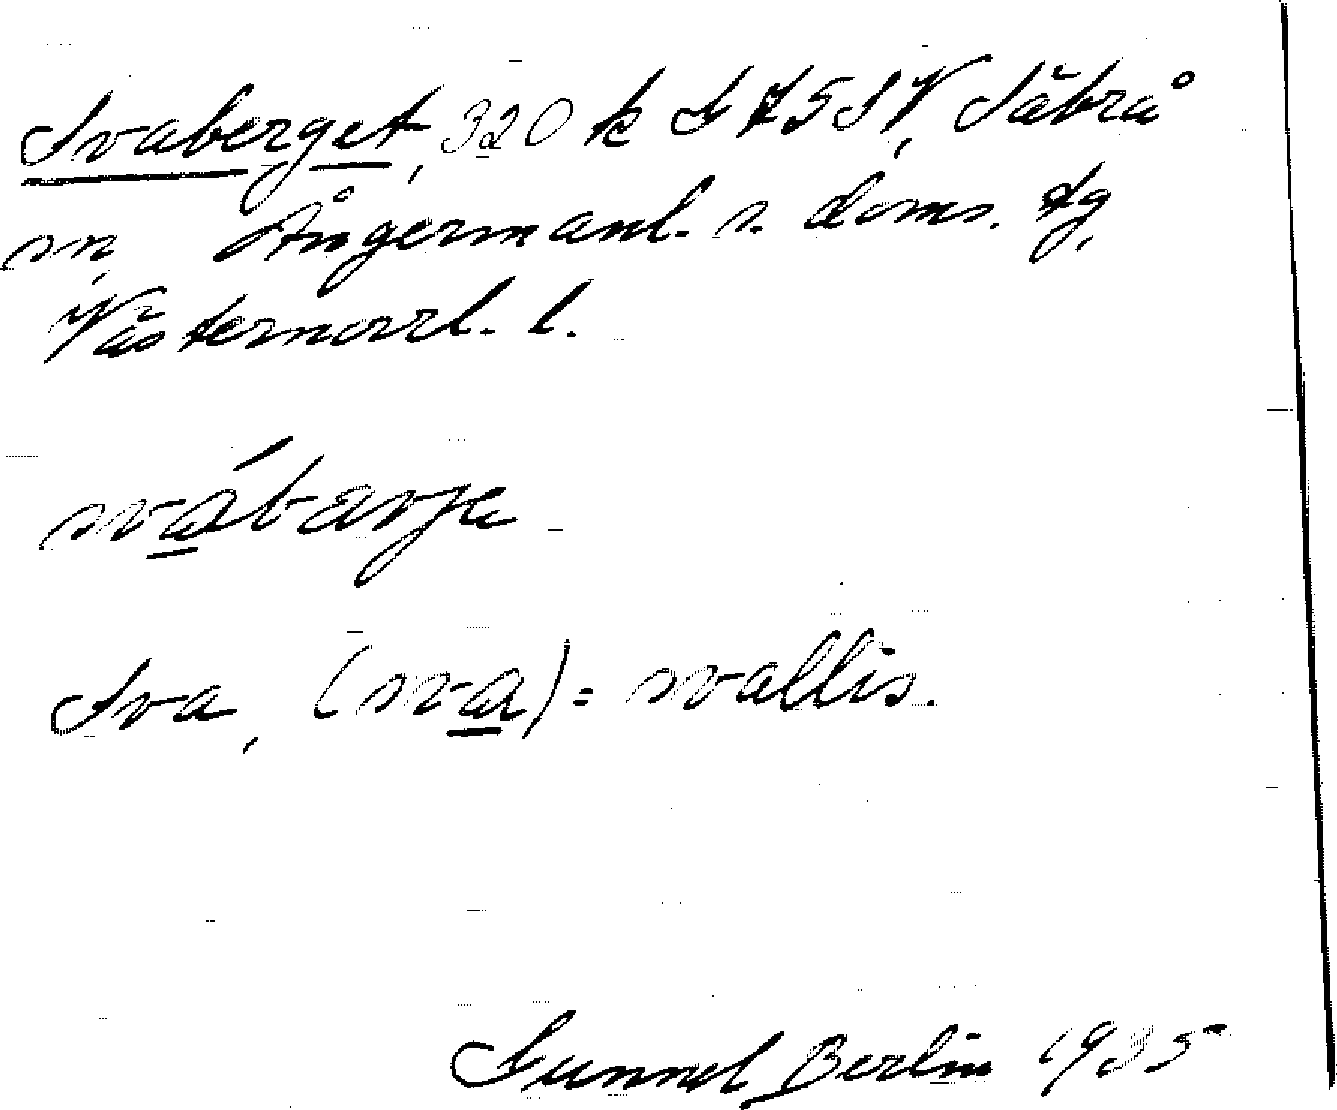 Svaberget, 320 k G 75 SV, Säbrå
sn, Ångermanl. s. doms. tg,
Västernorrl. l.
svábarje
Sva, (sva) = svallis.
Gunnel Berlin 1935